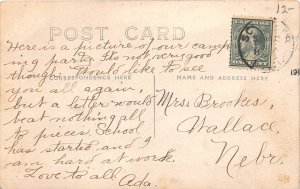 12-
POST CARD
Here is a picture of our camp
ing party. Its not very good
though. Would like to see
CORRESPONDENCE HERE
NAME AND ADDRESS HERE
you all again,
but a letter would
beat nothing all
to pieces. School
has started and I
am hard at work.
Love to all Ada.
Mrs. Brookes,
Wallace,
Nebr.